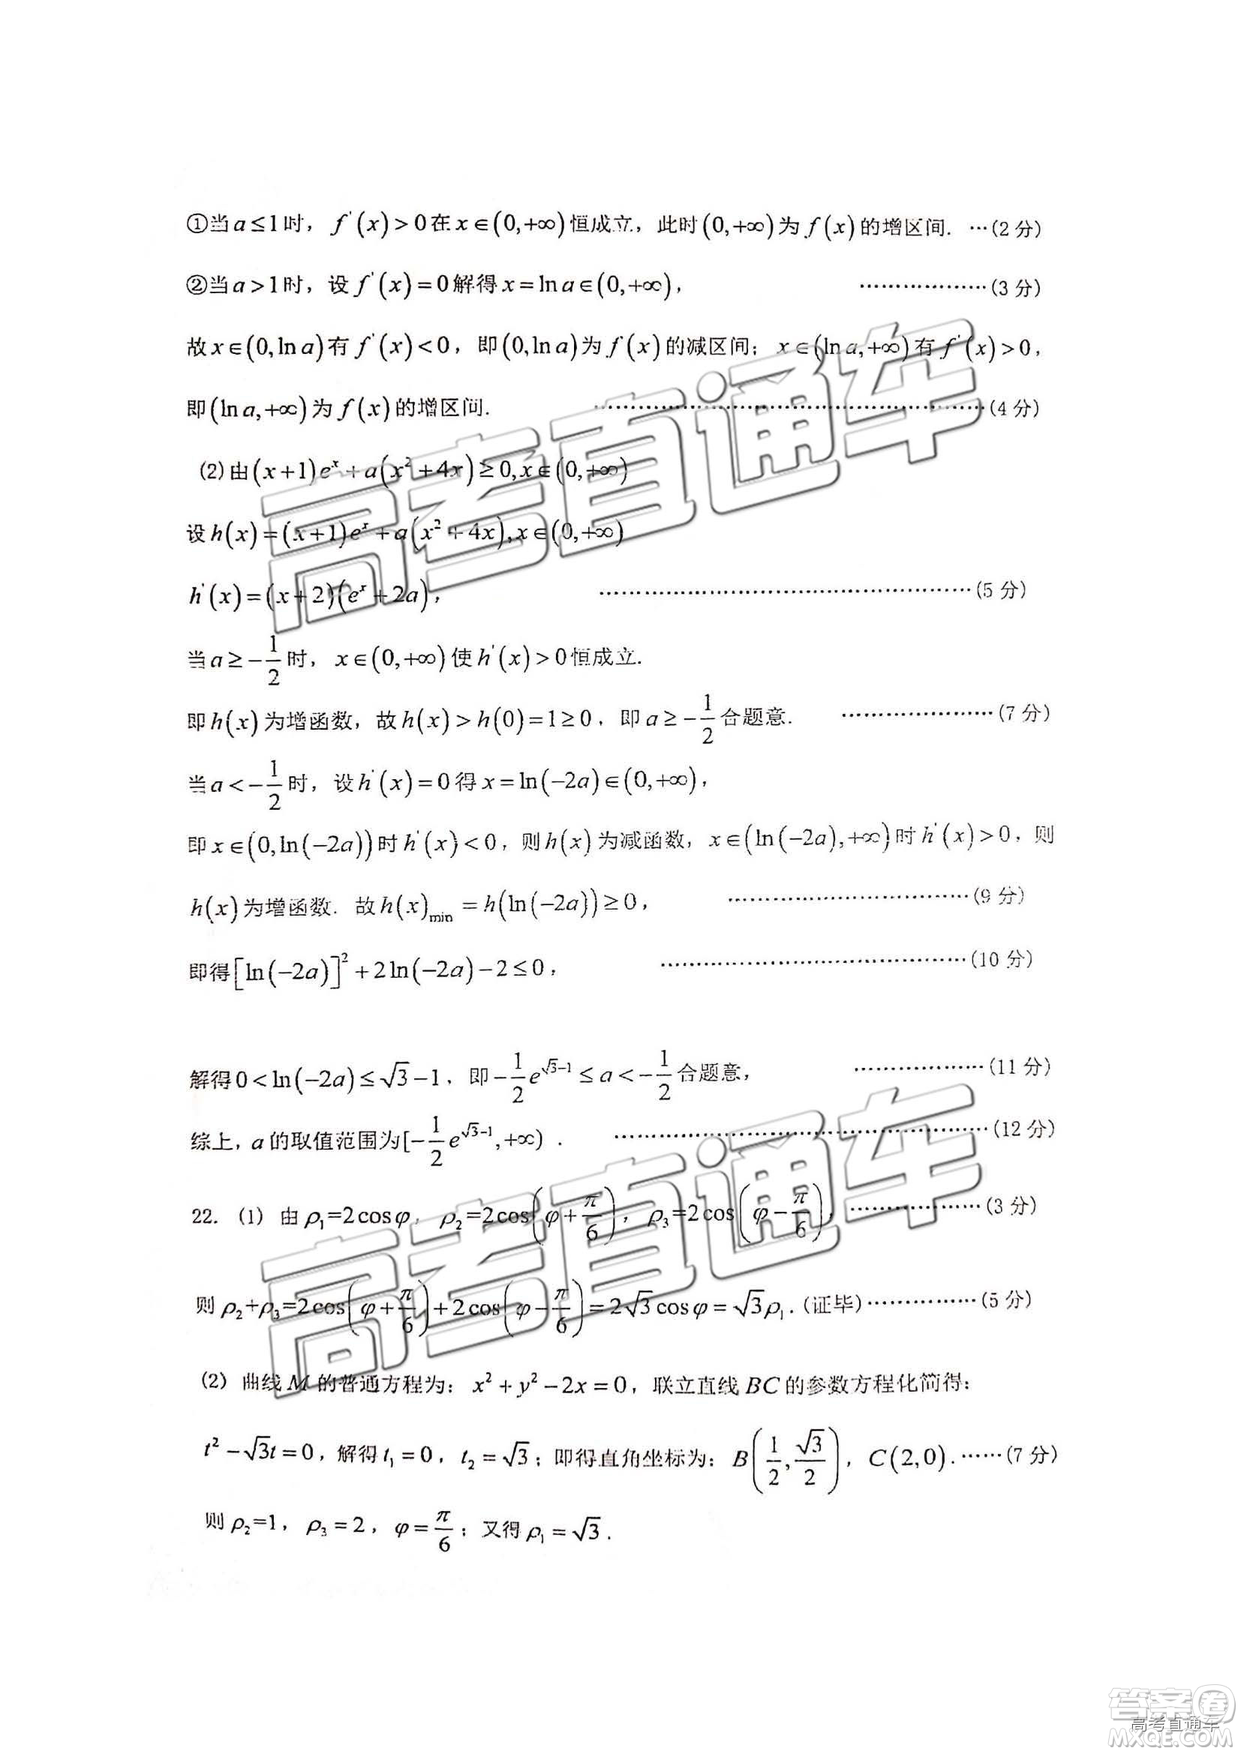 ①当a≤1时，f'(x)>0在x∈(0,+∞)恒成立，此时(0,+∞)为f(x)的增区间. …(2分)
②当a>1时，设f'(x)=0解得x=ln a∈(0,+∞)， ………………(3分)
故x∈(0,ln a)有f'(x)<0，即(0,ln a)为f(x)的减区间；x∈(ln a,+∞)有f'(x)>0，
即(ln a,+∞)为f(x)的增区间. ………………(4分)
(2)由(x+1)e^x+a(x²+4x)≥0,x∈(0,+∞)
设h(x)=(x+1)e^x+a(x²+4x),x∈(0,+∞)
h'(x)=(x+2)(e^x+2a)， ………………(5分)
当a≥-1/2时，x∈(0,+∞)使h'(x)>0恒成立.
即h(x)为增函数，故h(x)>h(0)=1≥0，即a≥-1/2合题意. ………………(7分)
当a<-1/2时，设h'(x)=0得x=ln(-2a)∈(0,+∞)，
即x∈(0,ln(-2a))时h'(x)<0，则h(x)为减函数，x∈(ln(-2a),+∞)时h'(x)>0，则
h(x)为增函数. 故h(x)min=h(ln(-2a))≥0， ………………(9分)
即得[ln(-2a)]²+2ln(-2a)-2≤0， ………………(10分)
解得0<ln(-2a)≤√3-1，即-1/2e^(√3-1)≤a<-1/2合题意， ………………(11分)
综上，a的取值范围为[-1/2e^(√3-1),+∞). ………………(12分)
22.（1）由ρ₁=2cosφ，ρ₂=2cos(φ+π/6)，ρ₃=2cos(φ-π/6)， ………………(3分)
则ρ₂+ρ₃=2cos(φ+π/6)+2cos(φ-π/6)=2√3cosφ=√3ρ₁.（证毕）……………(5分)
（2）曲线M的普通方程为：x²+y²-2x=0，联立直线BC的参数方程化简得：
t²-√3t=0，解得t₁=0，t₂=√3；即得直角坐标为：B(1/2,√3/2)，C(2,0). ……(7分)
则ρ₂=1，ρ₃=2，φ=π/6；又得ρ₁=√3.
高考直通车
高考直通车
答案圈
高考直通车
MXQE.COM